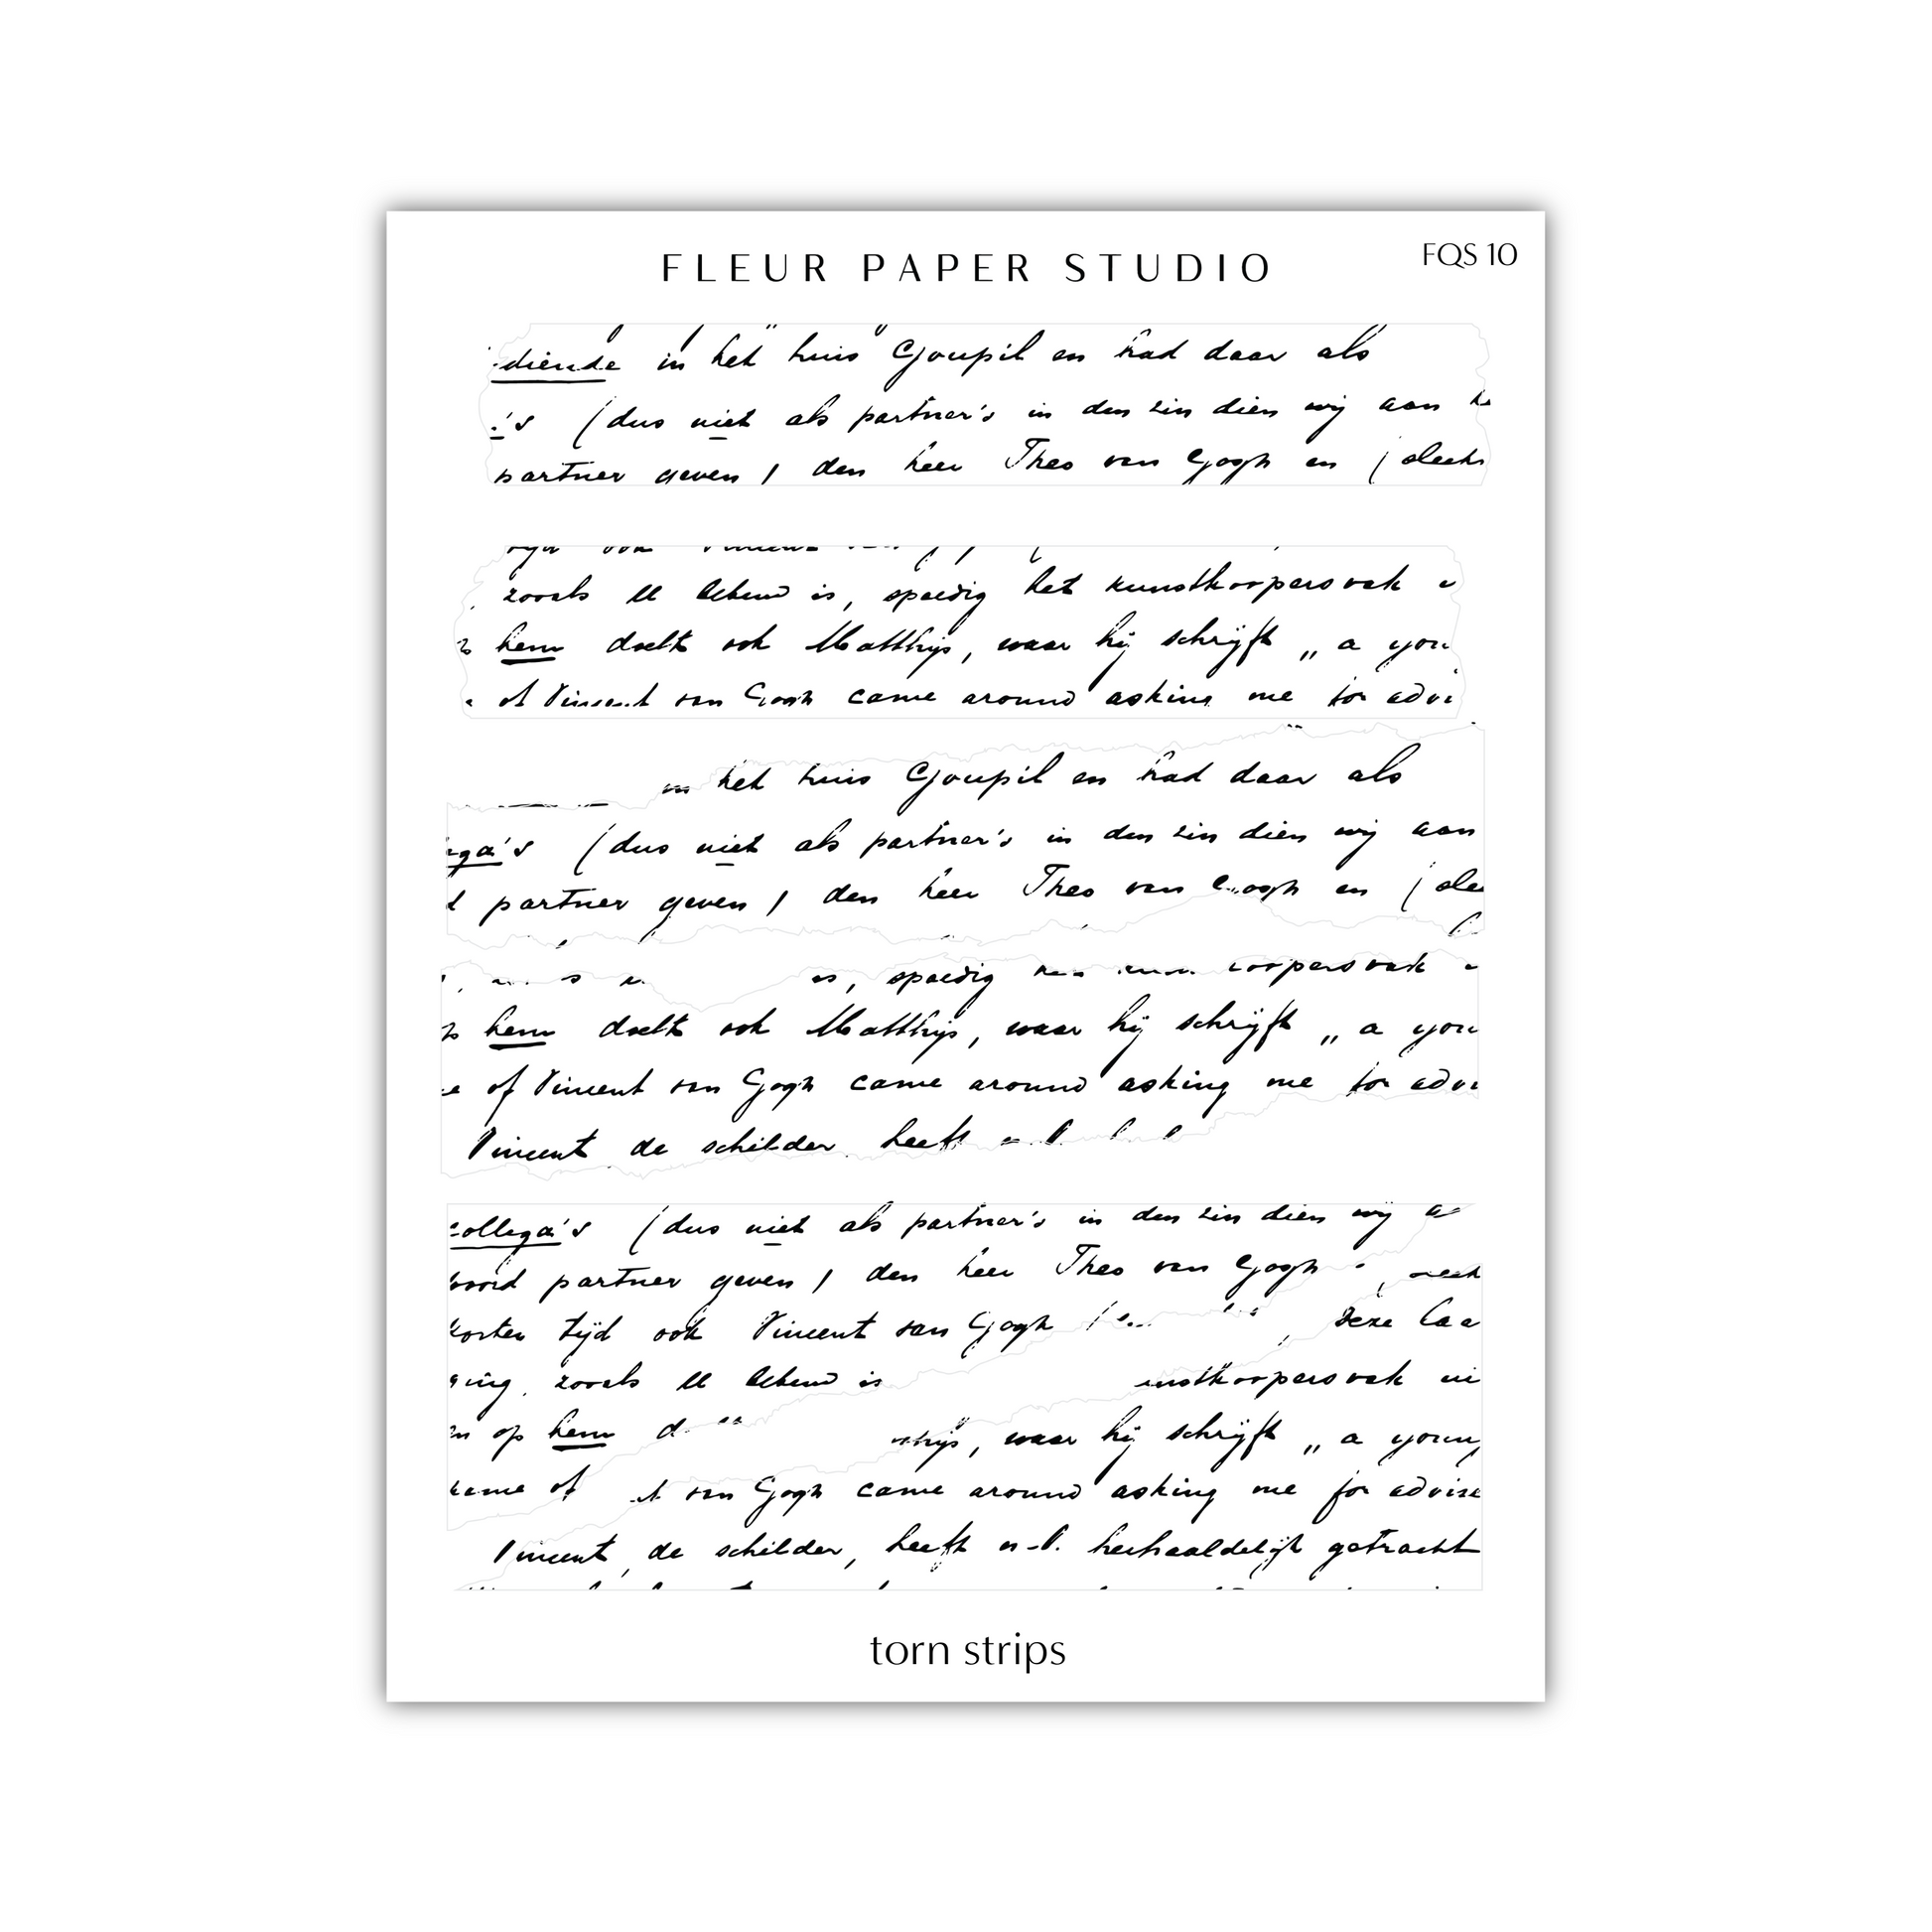 FLEUR PAPER STUDIO
FQS 10
diende in het huis Goupil en had daar als
's (dus niet als partner's in den zin dien wij aan
partner geven) den heer Theo van Gogh en (slechts
zooals U bekend is, spoedig het kunstkoopersvak
hem doelt ook Matthijs, waar hij schrijft „ a youn
of Vincent van Gogh came around asking me for advi
in het huis Goupil en had daar als
ega's (dus niet als partner's in den zin dien wij aan
d partner geven) den heer Theo van Gogh en (slec
is, spoedig koopersvak
hem doelt ook Matthijs, waar hij schrijft „ a youn
e of Vincent van Gogh came around asking me for advi
Vincent de schilder heeft
collega's (dus niet als partner's in den zin dien wij
woord partner geven) den heer Theo van Gogh
korten tijd ook Vincent van Gogh deze laa
ging, zooals U bekend is unstkoopersvak
op hem thijs, waar hij schrijft „ a young
name of van Gogh came around asking me for advise
Vincent, de schilder, heeft n.l. herhaaldelijk getracht
torn strips